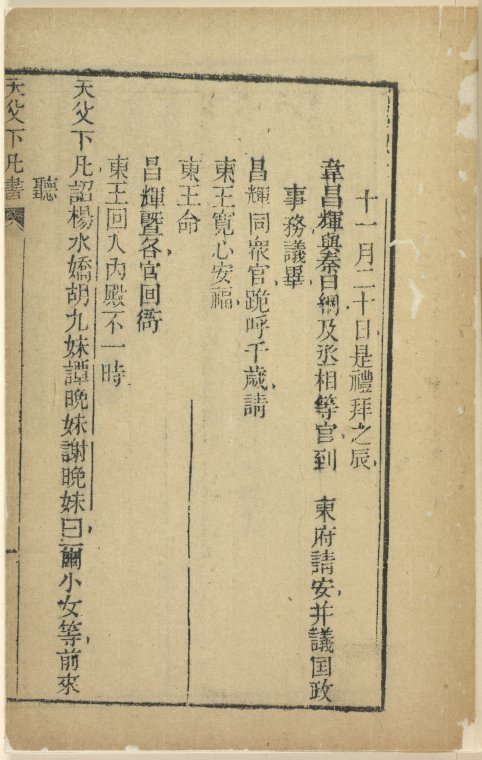 十一月二十日是禮拜之辰
韋昌輝與秦日綱及丞相等官到　東府請安并議国政
事務議畢
昌輝同衆官跪呼千歲請
東王寬心安福
東王命
昌輝暨各官回衙
東王回入內殿不一時
天父下凡詔楊水嬌胡九妹譚晚妹謝晚妹曰爾小女等前來
聽
天父下凡書